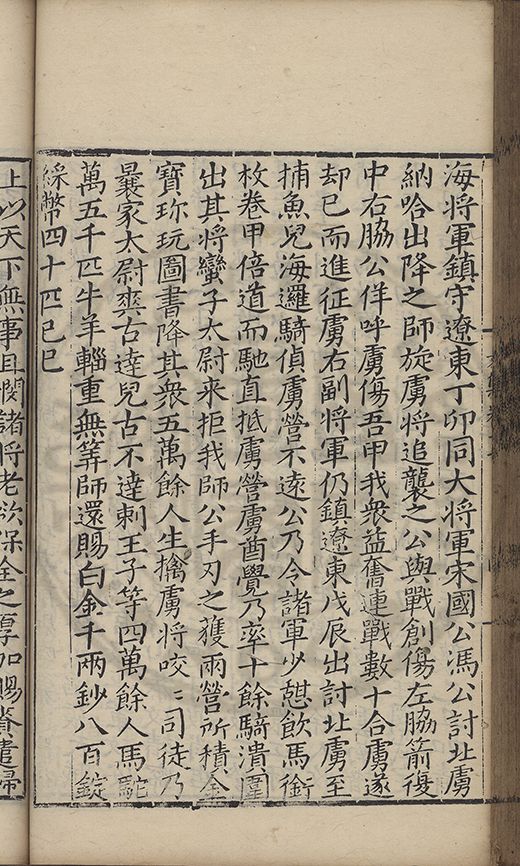 海將軍鎮守遼東丁卯同大將軍宋國公馮公討北虜
納哈出降之師旋虜將追襲之公與戰創傷左脇箭復
中右脇公佯呼虜傷吾甲我衆益奮連戰數十合虜遂
却已而進征虜右副將軍仍鎮遼東戊辰出討北虜至
捕魚兒海邏騎偵虜營不遠公乃令諸軍少憇飲馬銜
枚卷甲倍道而馳直抵虜營虜酋覺乃率十餘騎潰圍
出其將蠻子太尉来拒我師公手刃之獲兩營所積金
寶珎玩圖書降其衆五萬餘人生擒虜將咬〻司徒乃
㬥家太尉㷠古達兒古不達剌王子等四萬餘人馬駝
萬五千匹牛羊輜重無筭師還賜白金千兩鈔八百錠
綵幣四十匹已巳
上以天下無事且閔諸將老欲保全之厚加賜賚遣歸